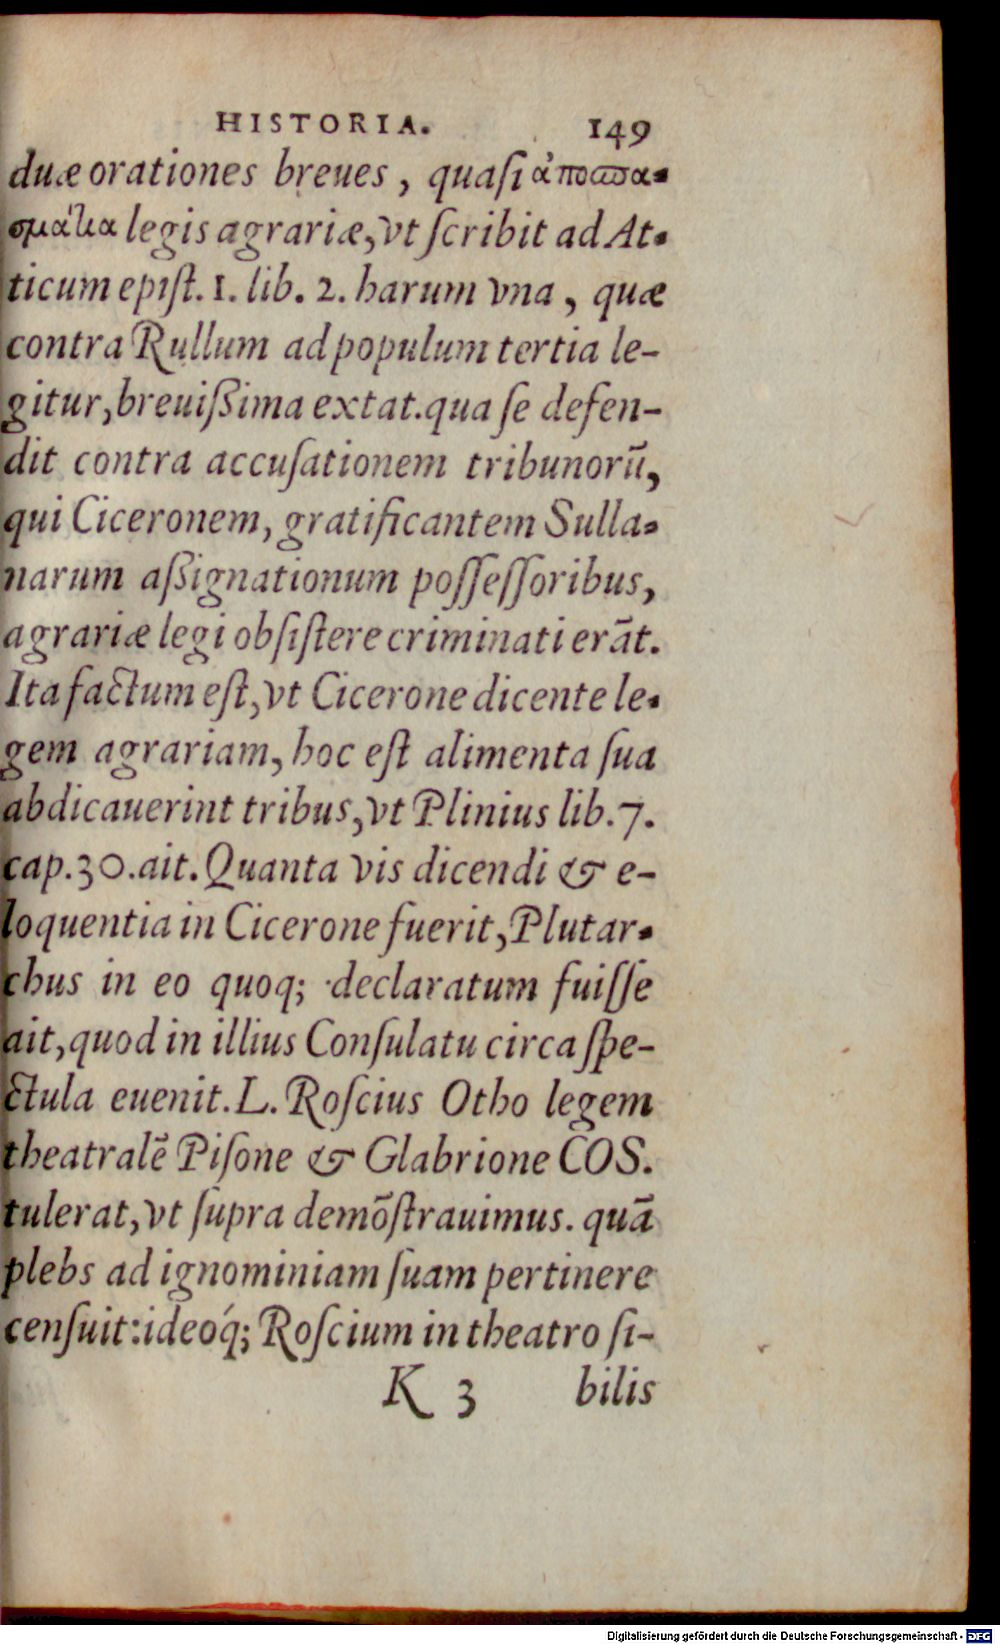 HISTORIA. 149
duæ orationes breues, quasi ἀποσπα-
σμάτια legis agrariæ, vt ſcribit ad At-
ticum epiſt. 1. lib. 2. harum vna, quæ
contra Rullum ad populum tertia le-
gitur, breuiſsima extat. qua ſe defen-
dit contra accuſationem tribunorũ,
qui Ciceronem, gratificantem Sulla-
narum aſsignationum poſſeſſoribus,
agrariæ legi obſiſtere criminati erãt.
Ita factum eſt, vt Cicerone dicente le-
gem agrariam, hoc eſt alimenta ſua
abdicauerint tribus, vt Plinius lib. 7.
cap. 30. ait. Quanta vis dicendi & e-
loquentia in Cicerone fuerit, Plutar-
chus in eo quoq; declaratum fuiſſe
ait, quod in illius Conſulatu circa ſpe-
ctula euenit. L. Roſcius Otho legem
theatralẽ Piſone & Glabrione COS.
tulerat, vt ſupra demõſtrauimus. quã
plebs ad ignominiam ſuam pertinere
cenſuit: ideóq; Roſcium in theatro ſi-
K 3 bilis
Digitalisierung gefördert durch die Deutsche Forschungsgemeinschaft - DFG